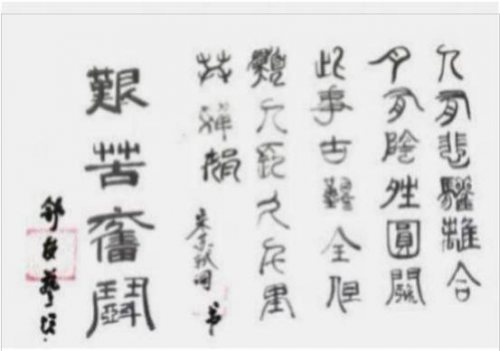 人有悲驩離合
月有陰夝圓闕
此事古難全但
願人長久千里
共嬋娟
艱苦奮鬥